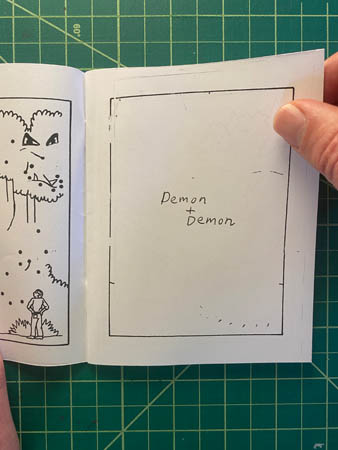 60°
Demon
+
Demon